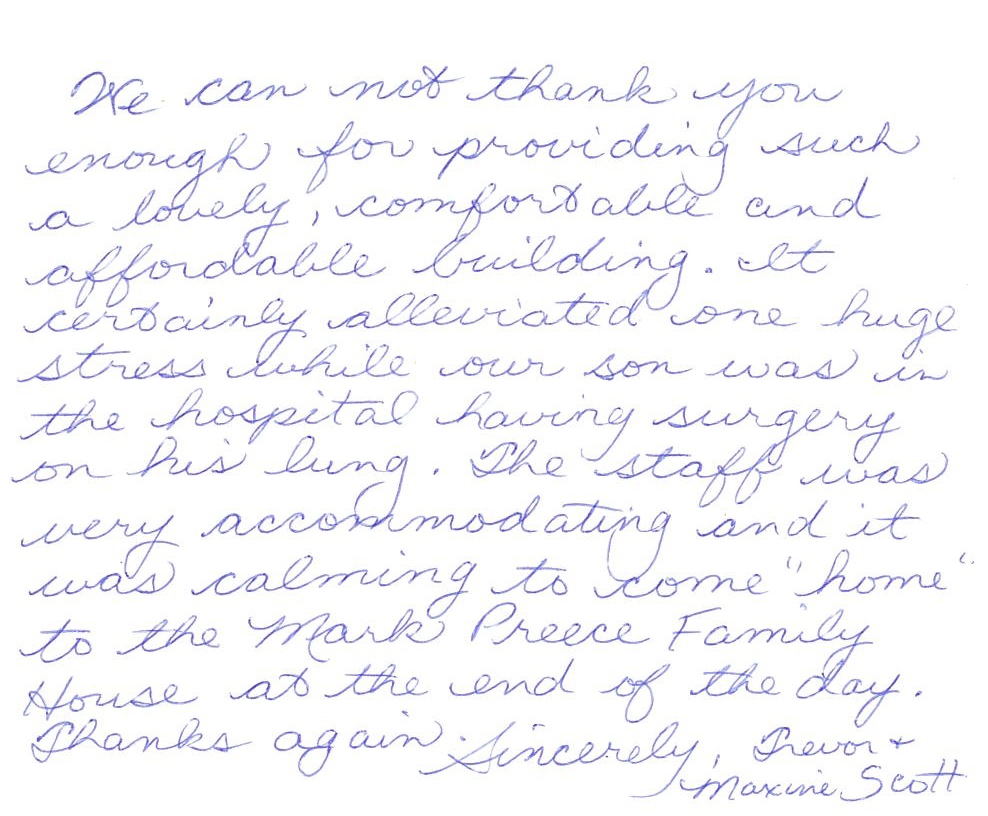 We can not thank you
enough for providing such
a lovely, comfortable and
affordable building. It
certainly alleviated one huge
stress while our son was in
the hospital having surgery
on his lung. The staff was
very accommodating and it
was calming to come "home"
to the Mark Preece Family
House at the end of the day.
Thanks again. Sincerely, Trevor +
Maxine Scott